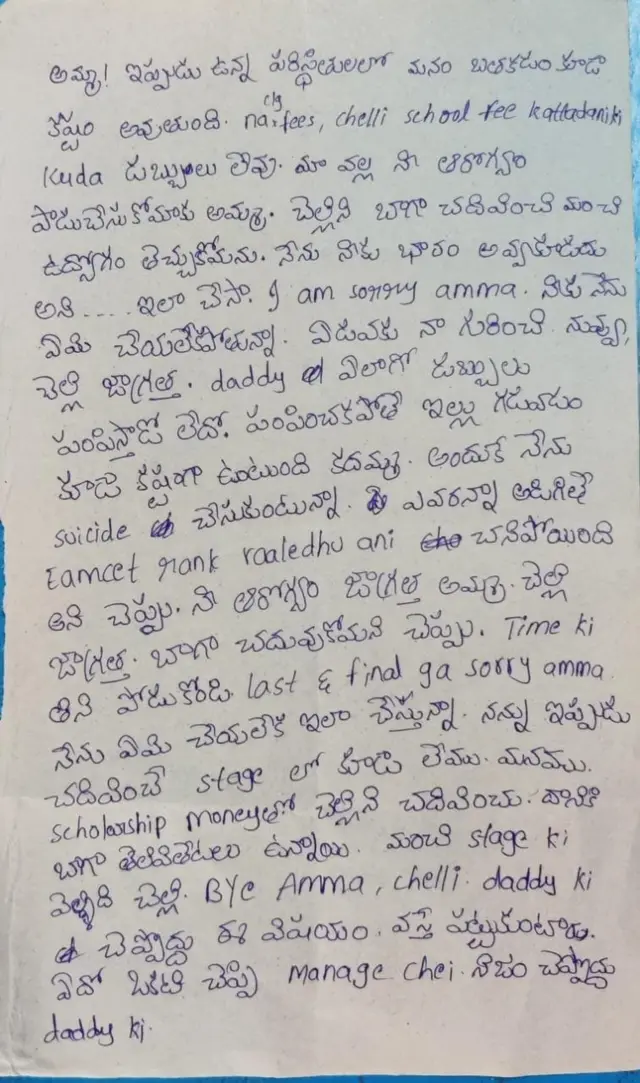 అమ్మ! ఇప్పుడు ఉన్న పరిస్థితులలో మనం బతకడం కూడా
కష్టం అవుతుంది. na clg fees, chelli school fee kattadaniki
kuda డబ్బులు లేవు. మా వల్ల నీ ఆరోగ్యం
పాడుచేసుకోమాకు అమ్మ. చెల్లిని బాగా చదివించి మంచి
ఉద్యోగం తెచ్చుకోమను. నేను నీకు భారం అవ్వకూడదు
అని .... ఇలా చేసా. I am sorry amma. నీకు నేను
ఏమి చేయలేకపోతున్నా. ఏడువకు నా గురించి. నువ్వు,
చెల్లి జాగ్రత్త. daddy ఏలాగో డబ్బులు
పంపిస్తాడో లేదో. పంపించకపోతే ఇల్లు గడువడం
కూడా కష్టంగా ఉంటుంది కదమ్మ. అందుకే నేను
suicide చేసుకుంటున్నా. ఎవరన్నా అడిగితే
Eamcet rank raaledhu ani చనిపోయింది
అని చెప్పు. నీ ఆరోగ్యం జాగ్రత్త అమ్మ. చెల్లి
జాగ్రత్త. బాగా చదువుకోమని చెప్పు. Time ki
తిని పోడుకోండి. last & final ga sorry amma.
నేను ఏమి చేయలేక ఇలా చేస్తున్నా. నన్ను ఇప్పుడు
చదివించే stage లో కూడా లేము. మనము.
scholarship moneyతో చెల్లిని చదివించు. దానికి
బాగా తెలివితేటలు ఉన్నాయి. మంచి stage ki
వెళ్ళిద్ది చెల్లి. Bye Amma, chelli. daddy ki
చెప్పొద్దు ఈ విషయం. వస్తే పట్టుకుంటారు.
ఏదో ఒకటి చెప్పి manage chei. నిజం చెప్పొద్దు
daddy ki.